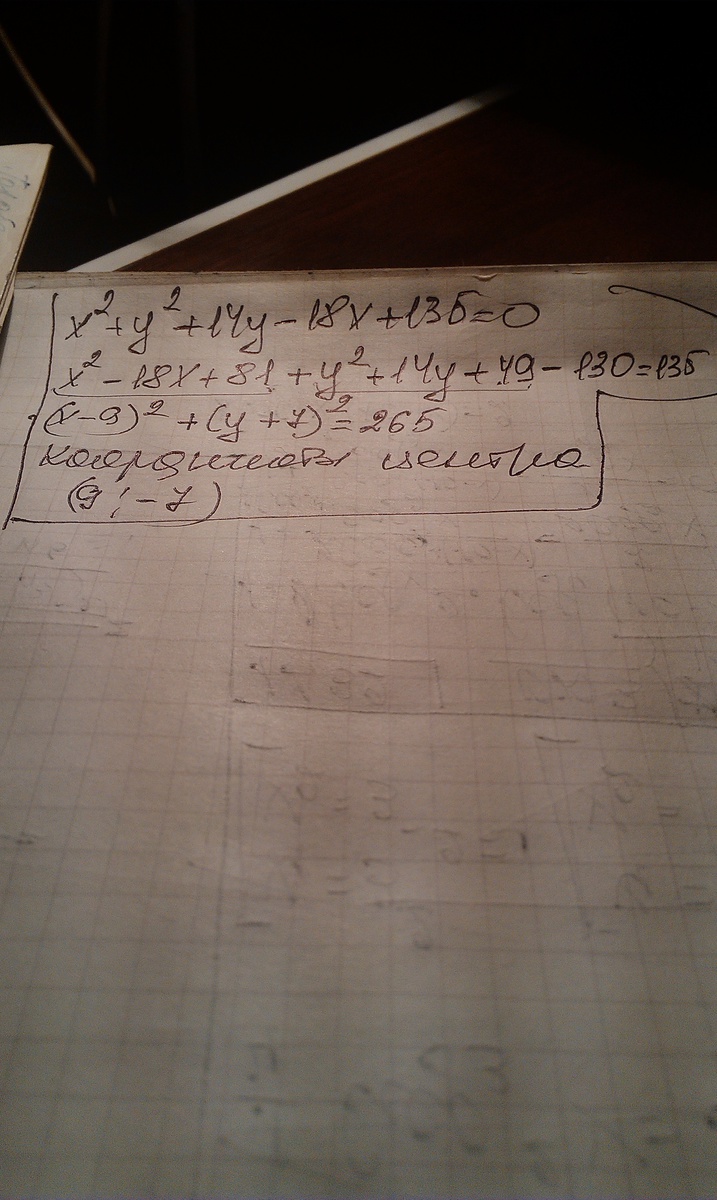 x² + y² + 14y − 18x + 135 = 0
x² − 18x + 81 + y² + 14y + 49 − 130 = 135
(x − 9)² + (y + 7)² = 265
координаты центра
(9; −7)